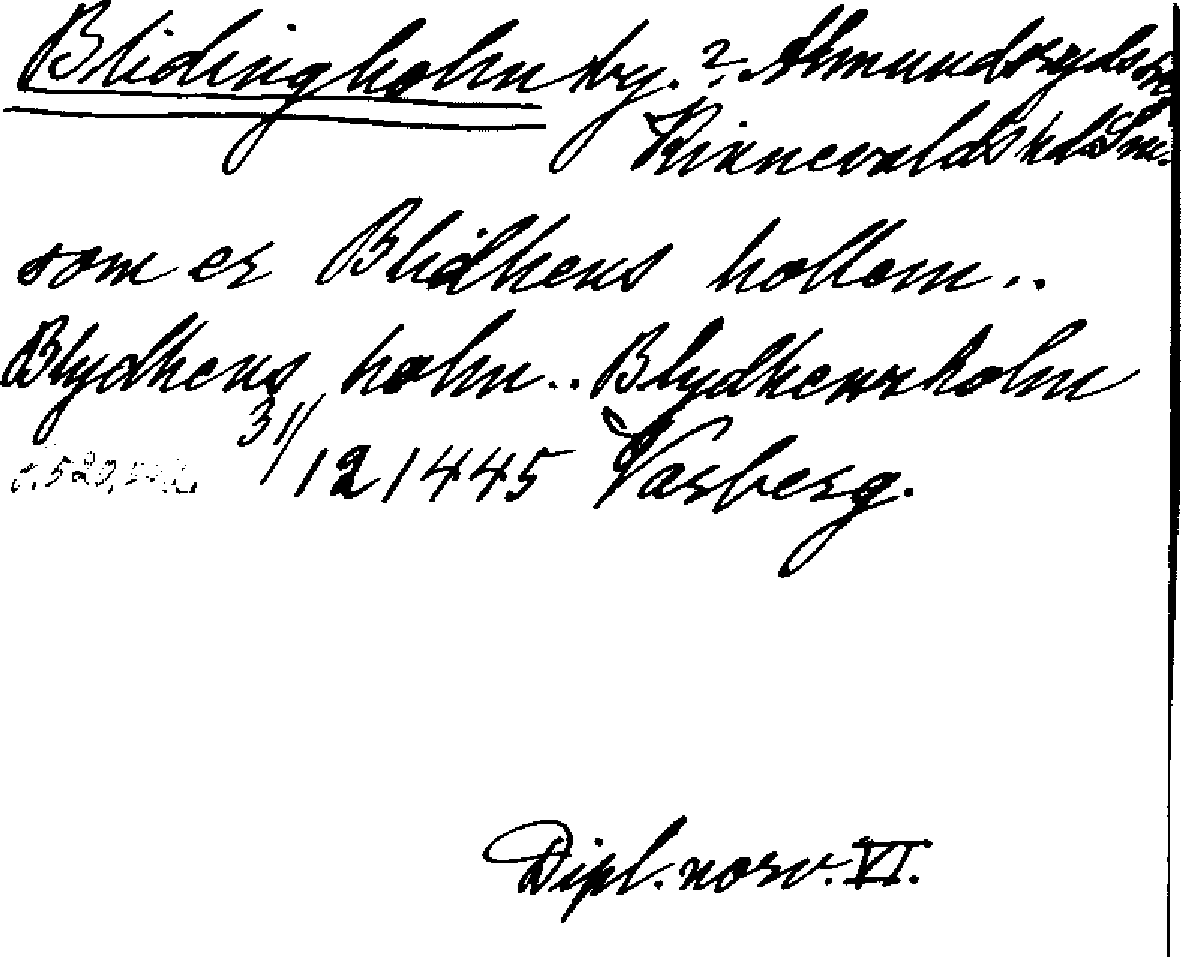 Blidingholm by.? Almundsryds sn
Kinnevalds hd. Sm.
som er Blidhens hollem..
Blydhens holm.. Blydhensholm
s. 520, 31/12 1445 Varberg.
Dipl. norv. VI.